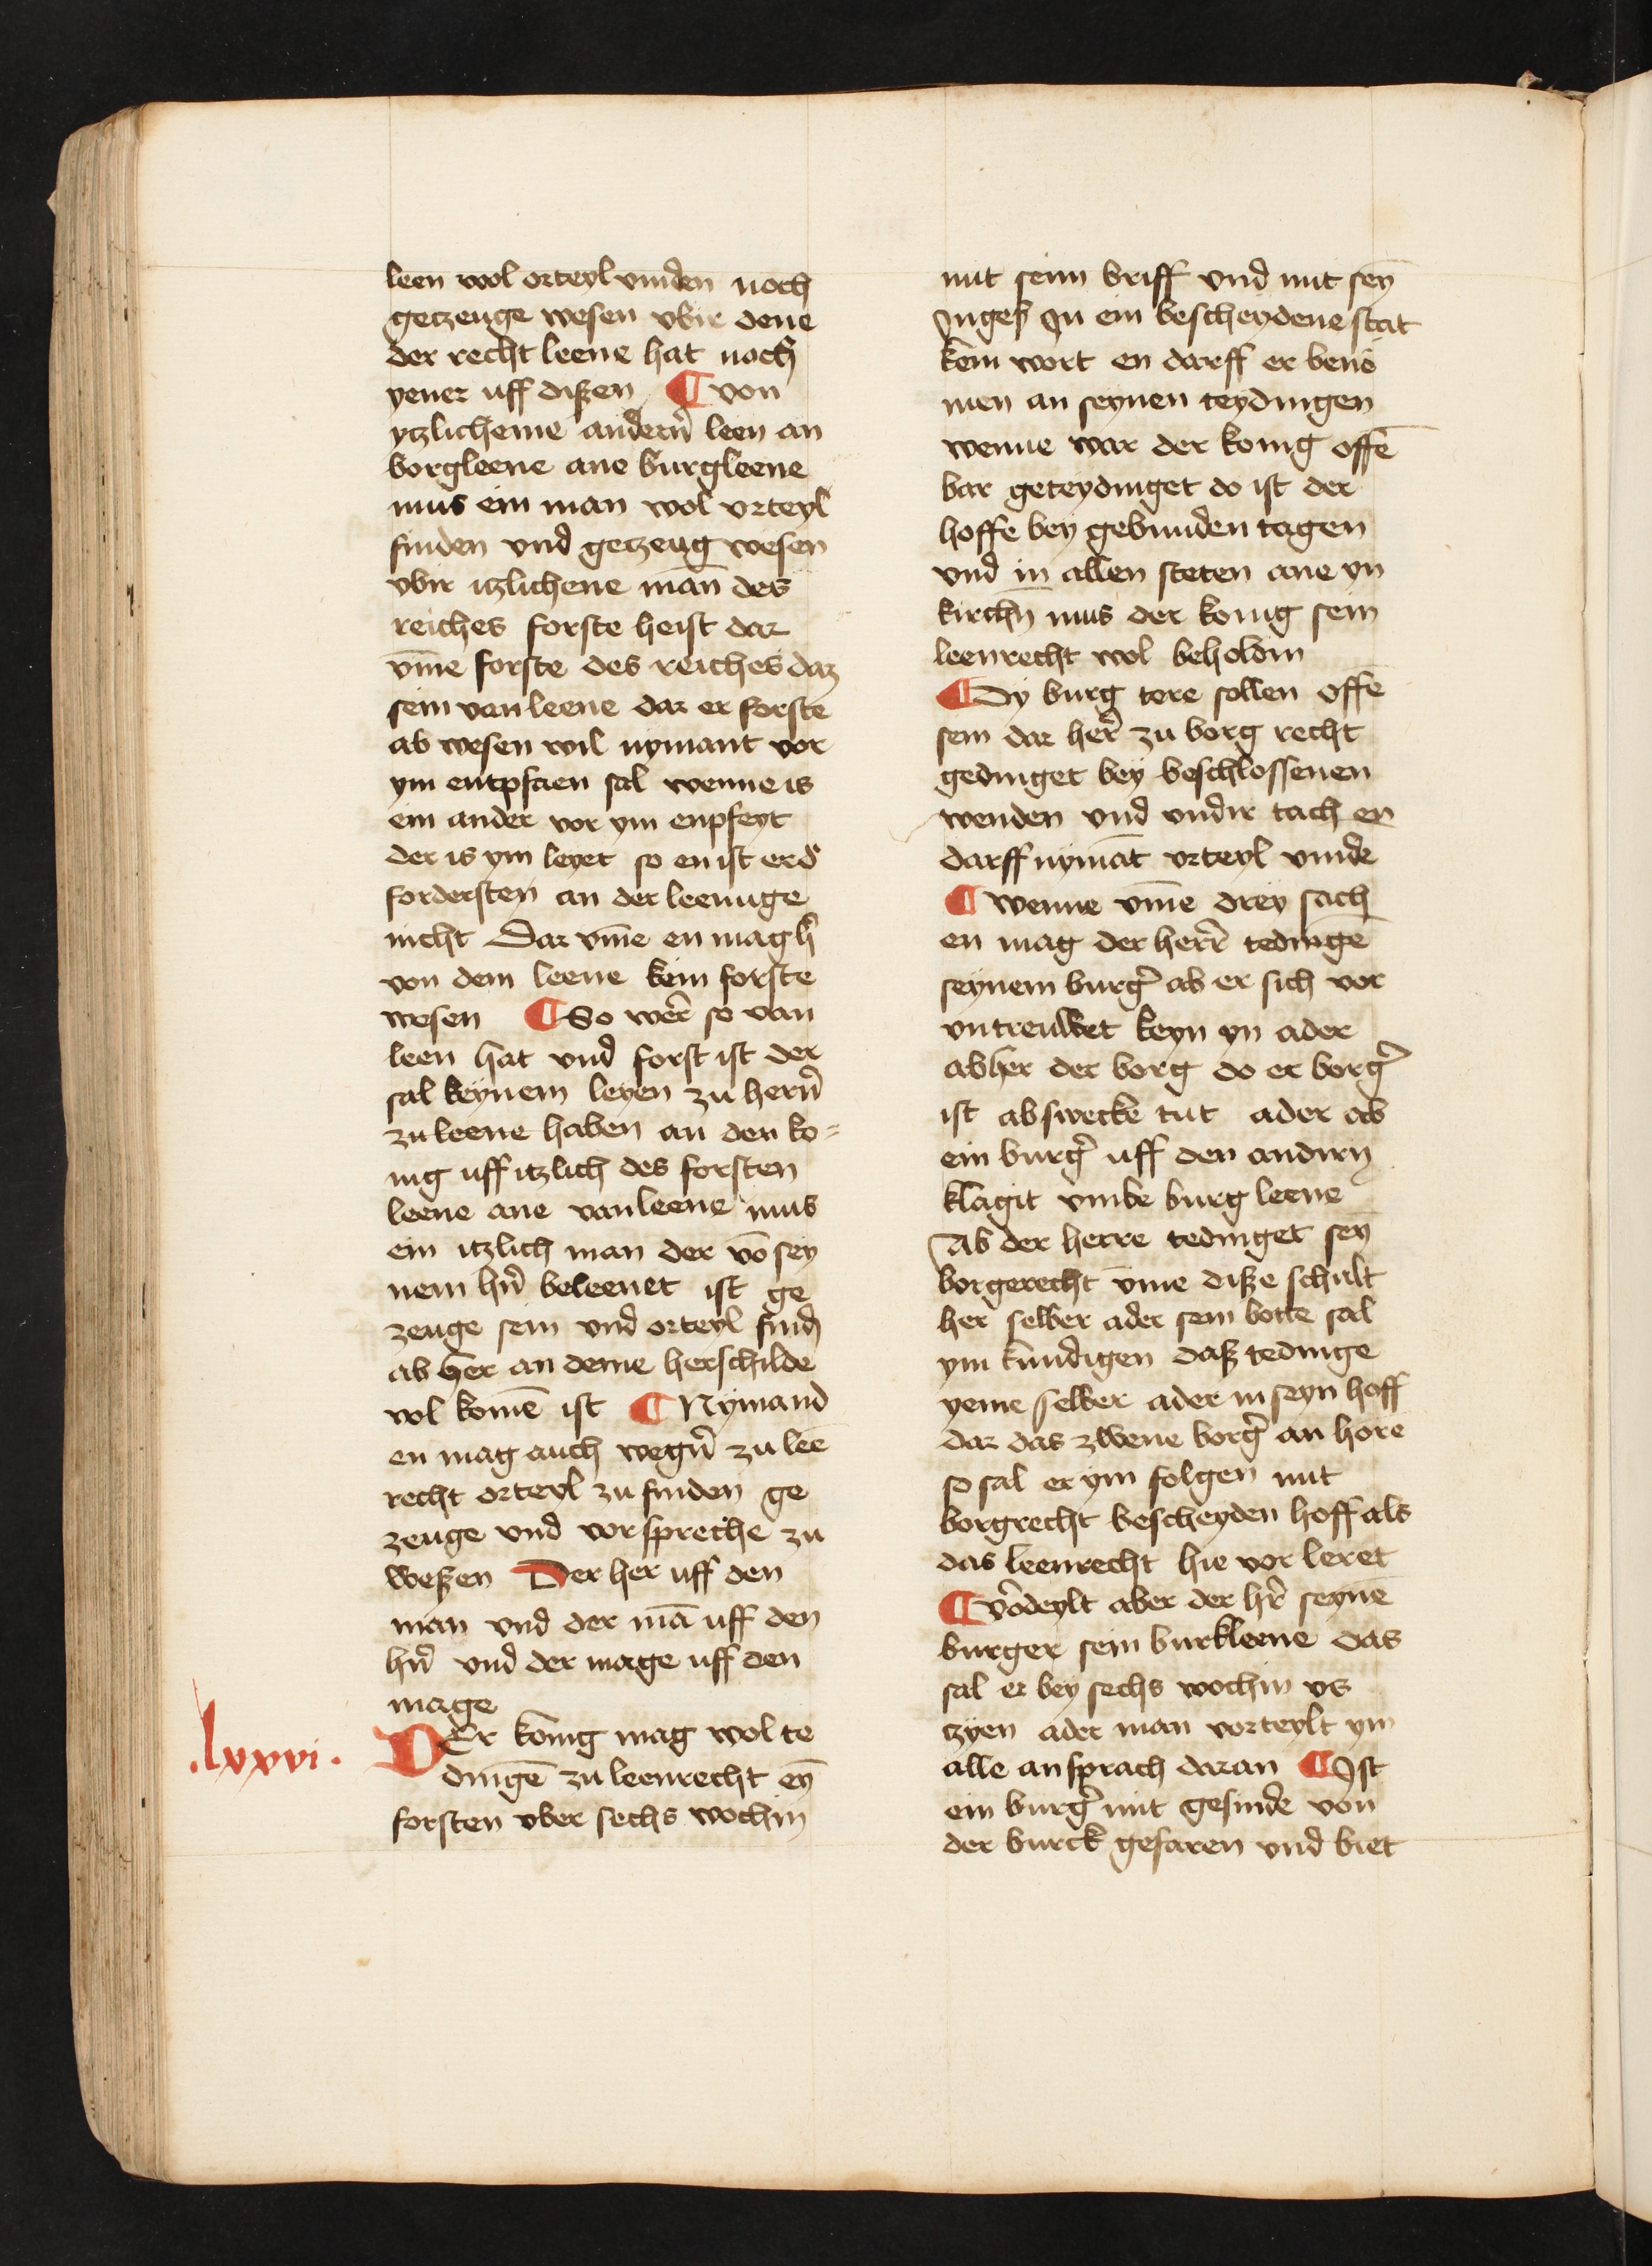 leen wol orteyl vinden noch
getzeuge wesen vbir dene
der recht leene hat noch
yener uff dißen ¶ von
ytzlicheme andern̄ leen an
borgleene ane burgleene
mus ein man wol vrteyl
finden vnd getzeug wesen
vbir itzlichene man̄ des
reiches forste heist dar
vm̄e forste des reiches daz
sein vanleene dar er forste
ab wesen wil nymant vor
ym entpfaen sal wenne is
ein ander vor ym enpfeyt
der is ym leyet so en ist er d̓
fordersten an der leenuge
nicht Dar vm̄e en mag h̓
von dem leene kein forste
wesen ¶ So wer̄ so van
leen hat vnd forst ist der
sal keynem leyen zu hern̄
zu leene haben an den ko=
nig uff itzlich des forsten
leene ane vanleene mus
ein itzlich man der vō sey
nem hn̄ beleenet ist ge
zeuge sein vnd orteyl find̄
ab her an deme herschilde
vol komē ist ¶ Nymand
en mag auch wegn̄ zu lee
recht orteyl zu finden ge
zeuge vnd vorspreche zu
weßen Der her uff den
man vnd der mā uff den
hn̄ vnd der mage uff den
mage
.lxxvi.
DEr konig mag wol te
dingē zu leenrecht eȳ
forsten vber sechs wochin
mit seim briff vnd mit seȳ
Inges̓ In ein bescheydene stat
kein wort en darff er beno
men an seynen teydingen
wenne war der konig offē
bar geteydinget do ist der
hoffe bey gebunden tagen
vnd in allen steten ane yn
kirchn̄ mus der konig sein
leenrecht wol beholdin
¶ Dy burg tore sollen offē
sein dar her̄ zu borg recht
gedinget bey beschlossenen
wenden vnd vndir tach en
darff nymāt vrteyl vinde
¶ wenne vm̄e drey sach
en mag der herr̄ tedingē
seynem burg̓ ab er sich vor
vntreuwet keyn yn ader
ab her der borg do er borg̓
ist abswecke tut ader ab
ein burg̓ uff den andirn
klagit vmbe burg leene
Ab der herre tedinget seȳ
borgerecht vm̄e diße schult
her selber ader sein botte sal
ym kundigen daß tedinge
yeme selber ader in seyn hoff
dar das zwene borg̓ an hore
so sal er ym folgen mit
borgrecht bescheyden hoff als
das leenrecht hie vor leret
¶ v̓odeylt aber der hr̄ seynē
burger sein burkleene das
sal er bey sechs wochin vs
tzyen ader man vorteylt ym
alle ansprach daran ¶ Ist
ein burg̓ mit gesinde von
der burck gefaren vnd biet